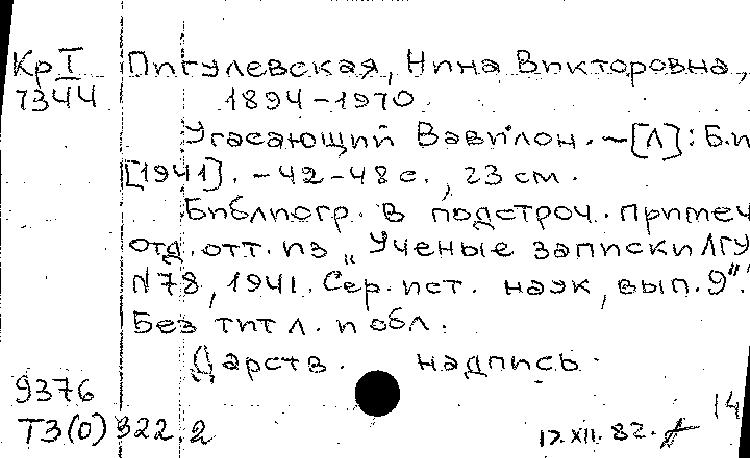 Кр I Пигулевская, Нина Викторовна,
7344 1894-1970.
Угасающий Вавилон. - [Л]: Б.и
[1941]. - 42-48 с., 23 см.
Библиогр. в подстроч. примеч
отд. отт. из „Ученые записки ЛГУ
N78, 1941. Сер. ист. наук, вып. 9".
Без тит л. и обл.
Дарств. надпись.
9376
14
Т3(0)322.2 17.XII.82.